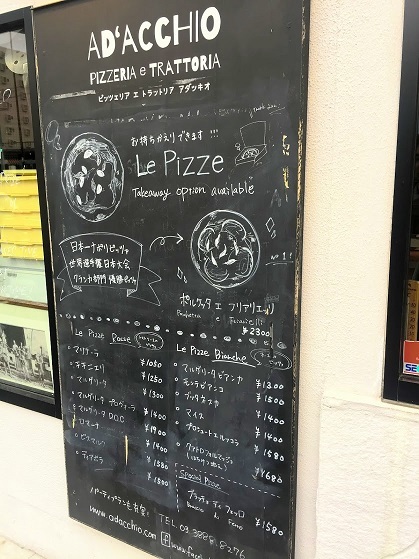 AD'ACCHIO
PIZZERIA e TRATTORIA
ピッツェリア エ トラットリア アダッキオ
お持ちかえりできます!!!
Le Pizze
Takeaway option available
日本一ナポリピッツァ
世界選手権日本大会
クラシカ部門 優勝ピッツァ
ポルケッタ エ フリアリエッリ
Porchetta e Friarielli
¥2300
Le Pizze Rosse
マリナーラ ¥1050
チチニエリ ¥1250
マルゲリータ ¥1300
マルゲリータ プロヴォーラ ¥1400
マルゲリータ D.O.C ¥1900
ロマーナ ¥1400
ビスマルク ¥1580
ディアボラ ¥1800
Le Pizze Bianche
マルゲリータ ビアンカ ¥1300
モンテビアンコ ¥1500
プッタネスカ ¥1400
マイス ¥1400
プロシュート エ ルッコラ ¥1580
クアトロフォルマッジ
(はちみつ添え) ¥1680
Special Pizze
ブラッチョ ディ フェッロ
Braccio di Ferro ¥1580
パーティプランも有ります!
www.adacchio.com
TEL 03-3888-8276